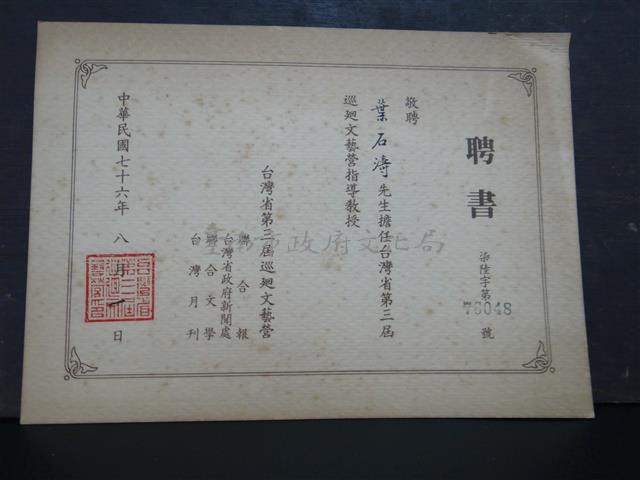 聘書
柒陸字第76048號
敬聘
葉石濤先生擔任台灣省第三屆
巡迴文藝營指導教授
台灣省第三屆巡迴文藝營
聯合報
台灣省政府新聞處
聯合文學
台灣月刊
中華民國七十六年八月一日
市政府文化局